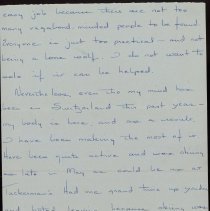 easy job because there are not too
many vagabond-minded people to be found.
Everyone is just too practical - and not
being a lone wolf. I do not want to
walk if it can be helped.
Nevertheless, even tho my mind have
been in Switzerland this past year -
my body is here, and as a result,
I have been making the most of it.
Have been quite active and were skiing
as late in May as could be at
Tuckerman's. Had me grand time up yonder
and hated because skiing was